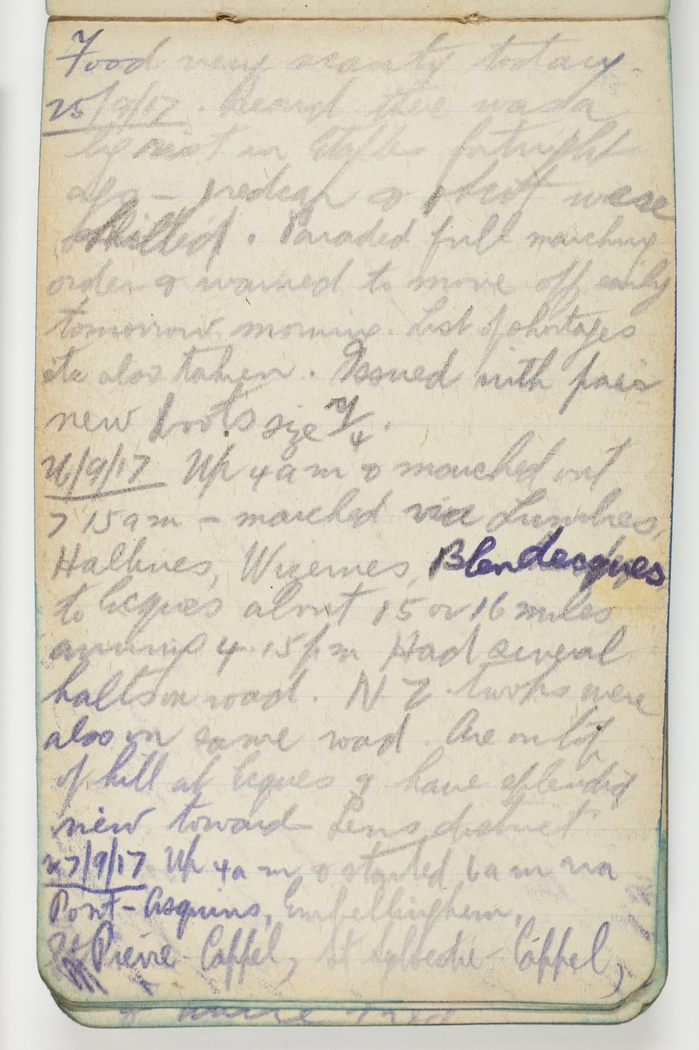 Food very scanty today
25/9/17. Heard there was a
big riot in Etaples fortnight
ago - redcap & were
killed. Paraded full marching
order & warned to move off early
tomorrow morning. List of shortages
etc also taken. Issued with pair
new boots size 7/4.
26/9/17 Up 4 am & marched out
7 15 am - marched via Lumbres,
Hallines, Wizernes, Blendecques
to Ecques about 15 or 16 miles
arriving 4.15 pm Had several
halts on road. N Z twos were
also on same road. Are on top
of hill at Ecques & have splendid
view toward Lens district
27/9/17 Up 4 a m & started 6 am via
Pont-Asquins,
St Pierre-Cappel, St Sylvestre-Cappel,